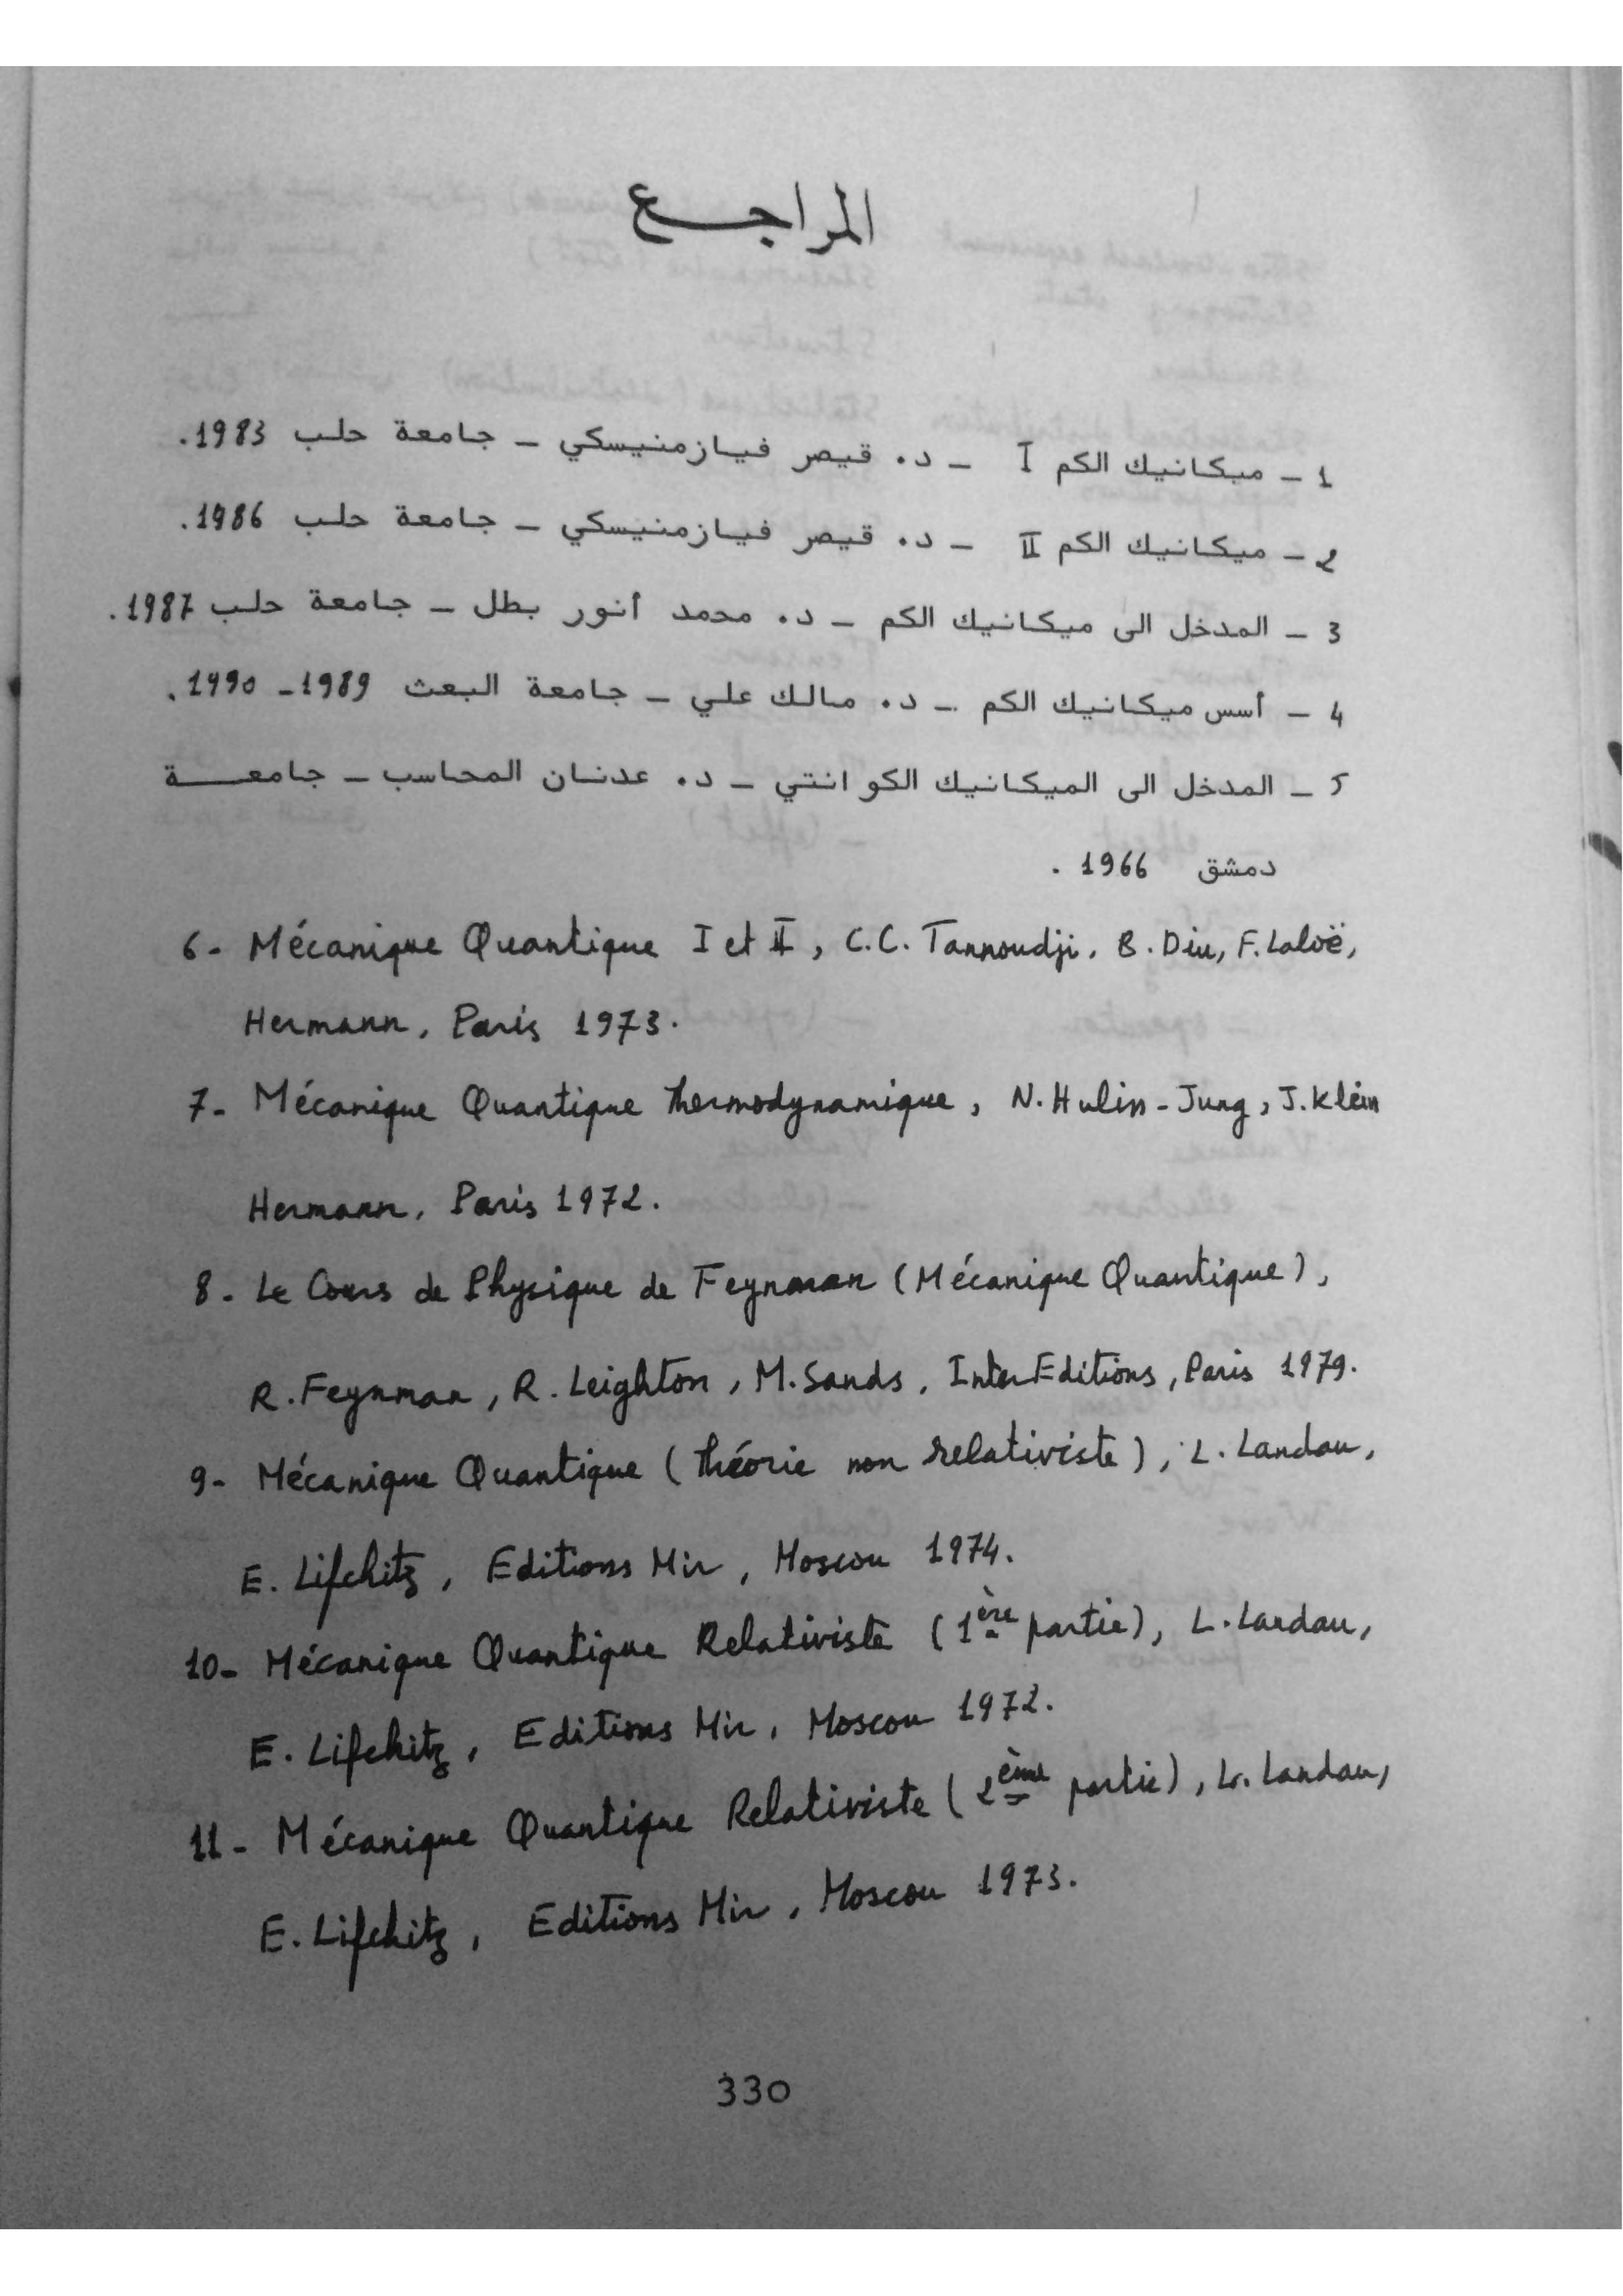 المراجع
1 - ميكانيك الكم I - د. قيصر فيازمنيسكي - جامعة حلب 1983.
2 - ميكانيك الكم II - د. قيصر فيازمنيسكي - جامعة حلب 1986.
3 - المدخل الى ميكانيك الكم - د. محمد أنور بطل - جامعة حلب 1987.
4 - أسس ميكانيك الكم - د. مالك علي - جامعة البعث 1989-1990.
5 - المدخل الى الميكانيك الكوانتي - د. عدنان المحاسب - جامعة
دمشق 1966.
6- Mécanique Quantique I et II, C.C. Tannoudji, B. Diu, F. Laloë,
Hermann, Paris 1973.
7- Mécanique Quantique Thermodynamique, N. Hulin-Jung, J. Klein
Hermann, Paris 1972.
8- Le Cours de Physique de Feynman (Mécanique Quantique),
R. Feynman, R. Leighton, M. Sands, InterEditions, Paris 1979.
9- Mécanique Quantique (Théorie non relativiste), L. Landau,
E. Lifchitz, Editions Mir, Moscou 1974.
10- Mécanique Quantique Relativiste (1ère partie), L. Landau,
E. Lifchitz, Editions Mir, Moscou 1972.
11- Mécanique Quantique Relativiste (2ème partie), L. Landau,
E. Lifchitz, Editions Mir, Moscou 1973.
330